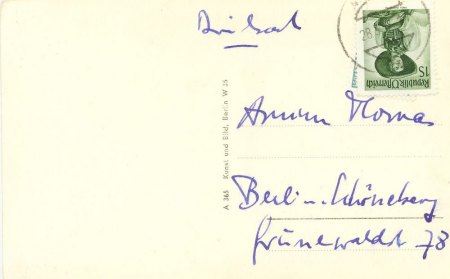 Drucksache
28.
1S
Republik Österreich
A 365 Kunst und Bild, Berlin W 35
Armin Thomas
Berlin-Schöneberg
Grunewaldstr 78